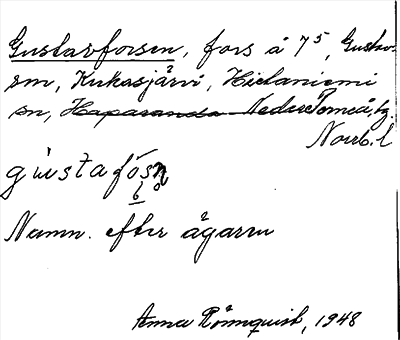 Gustavforsen, fors å 75, Gustav-
sm, Kukasjärvi, Hietaniemi
sn, Haparanda Neder Torneå, tg.
Norrb. l
gústafósn
Namn. efter ägaren
Anna Rönnquist, 1948